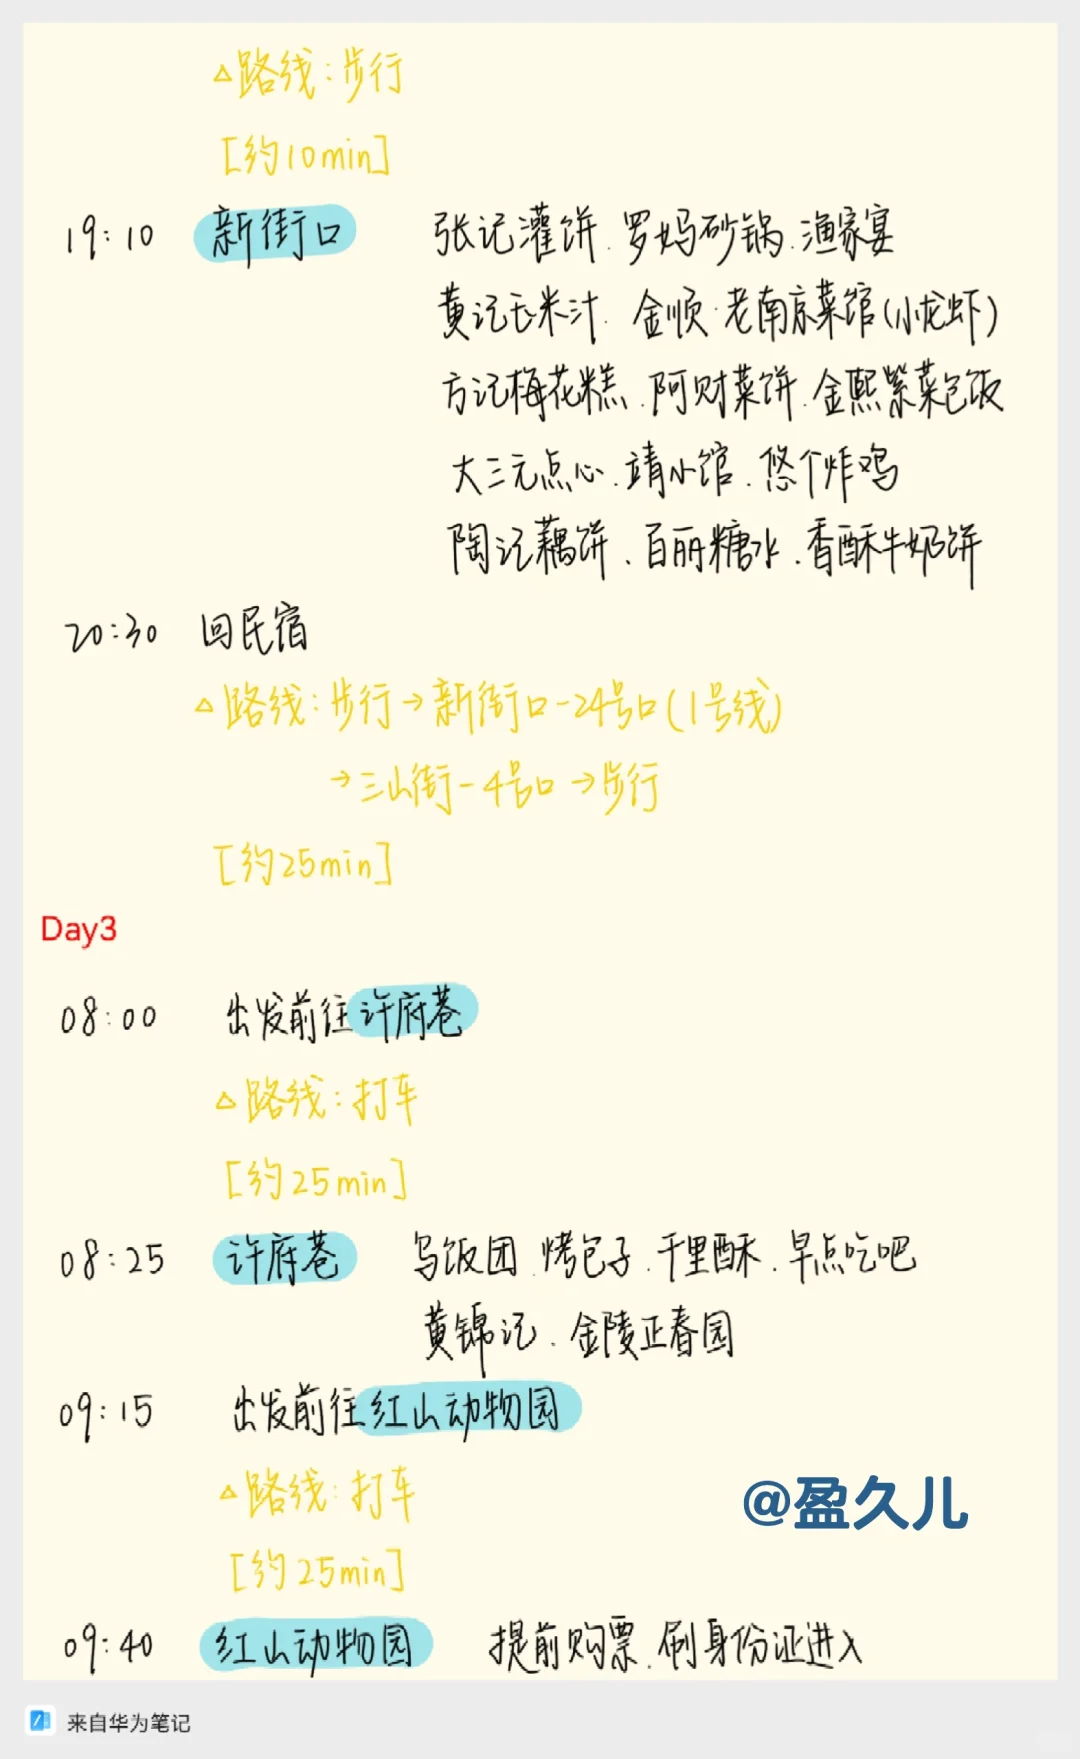 △路线:步行
[约10min]
19:10 新街口 张记灌饼.罗妈砂锅.渔家宴
黄记玉米汁.金顺.老南京菜馆(小龙虾)
方记梅花糕.阿财菜饼.金熙紫菜包饭
大三元点心.靖小馆.悠个炸鸡
陶记藕饼.百丽糖水.香酥牛奶饼
20:30 回民宿
△路线:步行→新街口-24号口(1号线)
→三山街-4号口→步行
[约25min]
Day3
08:00 出发前往许府巷
△路线:打车
[约25min]
08:25 许府巷 乌饭团.烤包子.千里酥.早点吃吧
黄锦记.金陵正春园
09:15 出发前往红山动物园
△路线:打车
@盈久儿
[约25min]
09:40 红山动物园 提前购票.刷身份证进入
来自华为笔记